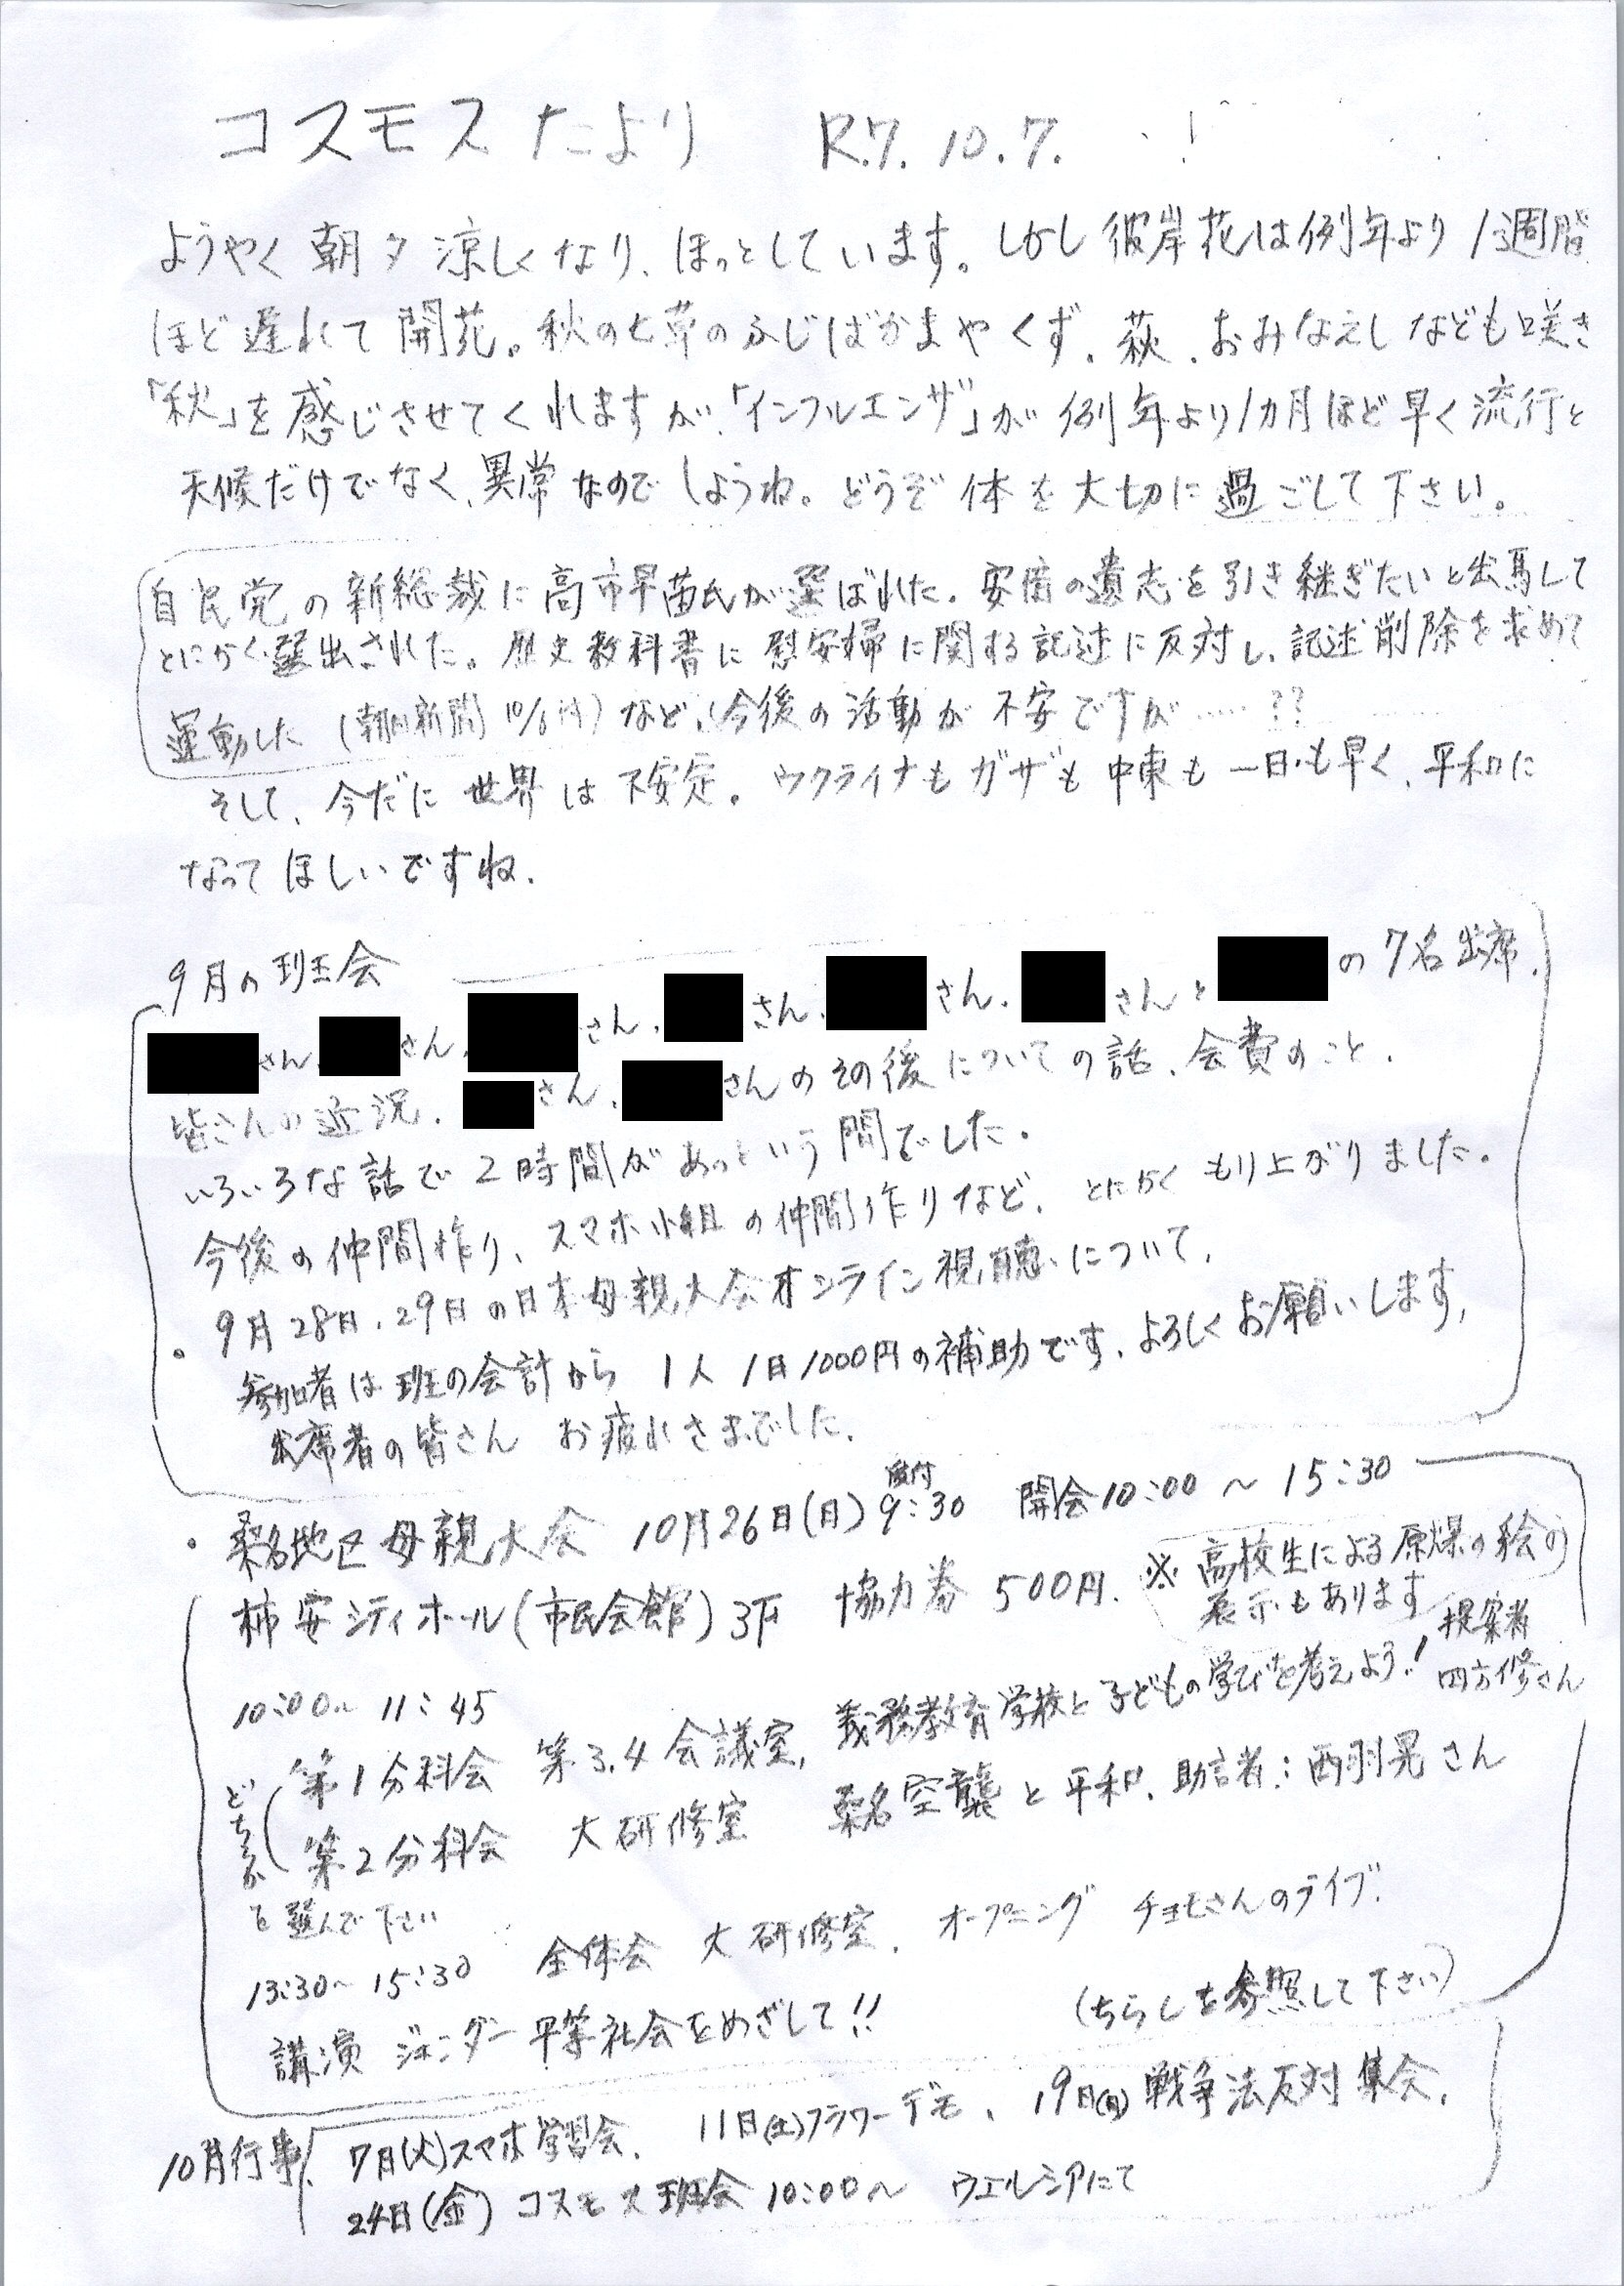 コスモスたより R.7.10.7.
ようやく朝夕涼しくなり、ほっとしています。しかし彼岸花は例年より1週間
ほど遅れて開花。秋の七草のふじばかまやくず、萩、おみなえしなども咲き
「秋」を感じさせてくれますが、「インフルエンザ」が例年より1カ月ほど早く流行と
天候だけでなく、異常なのでしょうね。どうぞ体を大切に過ごして下さい。
自民党の新総裁に高市早苗氏が選ばれた。安倍の遺志を引き継ぎたいと出馬して
とにかく選出された。歴史教科書に慰安婦に関する記述に反対し、記述削除を求めて
運動した(朝日新聞10/6付)など、今後の活動が不安ですが……??
そして、今だに世界は不安定。ウクライナもガザも中東も一日も早く、平和に
なってほしいですね.
9月の班会
さん、さん、さん、さん、さん、さんとの7名出席.
皆さんの近況.さん、さんのその後についての話、会費のこと.
いろいろな話で2時間があっという間でした.
今後の仲間作り、スマホ小組の仲間作りなど、とにかくもり上がりました.
・9月28日、29日の日本母親大会オンライン視聴について.
参加者は班の会計から1人1日1000円の補助です、よろしくお願いします,
出席者の皆さん お疲れさまでした.
・桑名地区母親大会 10月26日(日)受付9:30 開会10:00〜15:30
柿安シティホール(市民会館)3F 協力券 500円.
※高校生による原爆の絵の
展示もあります
10:00〜11:45
第1分科会 第3.4会議室, 義務教育学校と子どもの学びを考えよう! 提案者
四方修さん
第2分科会 大研修室 桑名空襲と平和、助言者:西羽晃さん
どちらか
を選んで下さい
13:30〜15:30 全体会 大研修室. オープニング チョモさんのライブ.
講演 ジェンダー平等社会をめざして!! (ちらしを参照して下さい)
10月行事 7日(火)スマホ学習会. 11日(土)フラワーデモ、19日(月)戦争法反対集会.
24日(金)コスモス班会10:00〜 ウエルシアにて